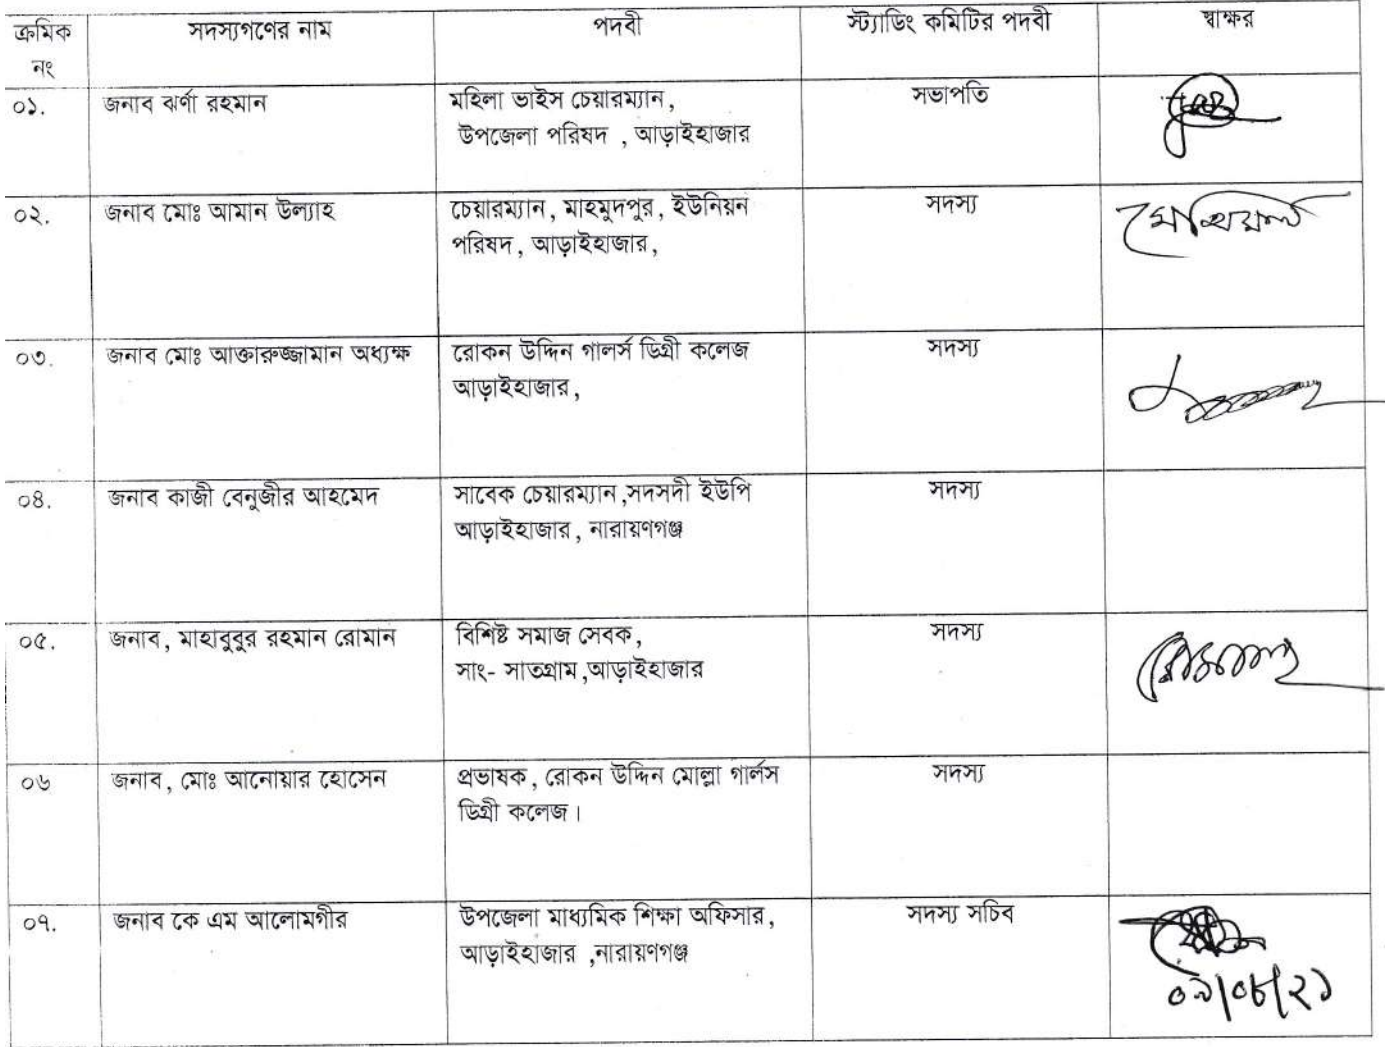 ক্রমিক নং সদস্যগণের নাম পদবী স্ট্যাডিং কমিটির পদবী স্বাক্ষর
০১. জনাব ঝর্ণা রহমান মহিলা ভাইস চেয়ারম্যান, সভাপতি
উপজেলা পরিষদ , আড়াইহাজার
০২. জনাব মোঃ আমান উল্যাহ চেয়ারম্যান, মাহমুদপুর, ইউনিয়ন সদস্য
পরিষদ, আড়াইহাজার,
০৩. জনাব মোঃ আক্তারুজ্জামান অধ্যক্ষ রোকন উদ্দিন গালর্স ডিগ্রী কলেজ সদস্য
আড়াইহাজার,
০৪. জনাব কাজী বেনুজীর আহমেদ সাবেক চেয়ারম্যান,সদসদী ইউপি সদস্য
আড়াইহাজার, নারায়ণগঞ্জ
০৫. জনাব, মাহাবুবুর রহমান রোমান বিশিষ্ট সমাজ সেবক, সদস্য
সাং- সাতগ্রাম,আড়াইহাজার
০৬ জনাব, মোঃ আনোয়ার হোসেন প্রভাষক, রোকন উদ্দিন মোল্লা গার্লস সদস্য
ডিগ্রী কলেজ।
০৭. জনাব কে এম আলোমগীর উপজেলা মাধ্যমিক শিক্ষা অফিসার, সদস্য সচিব
আড়াইহাজার ,নারায়ণগঞ্জ